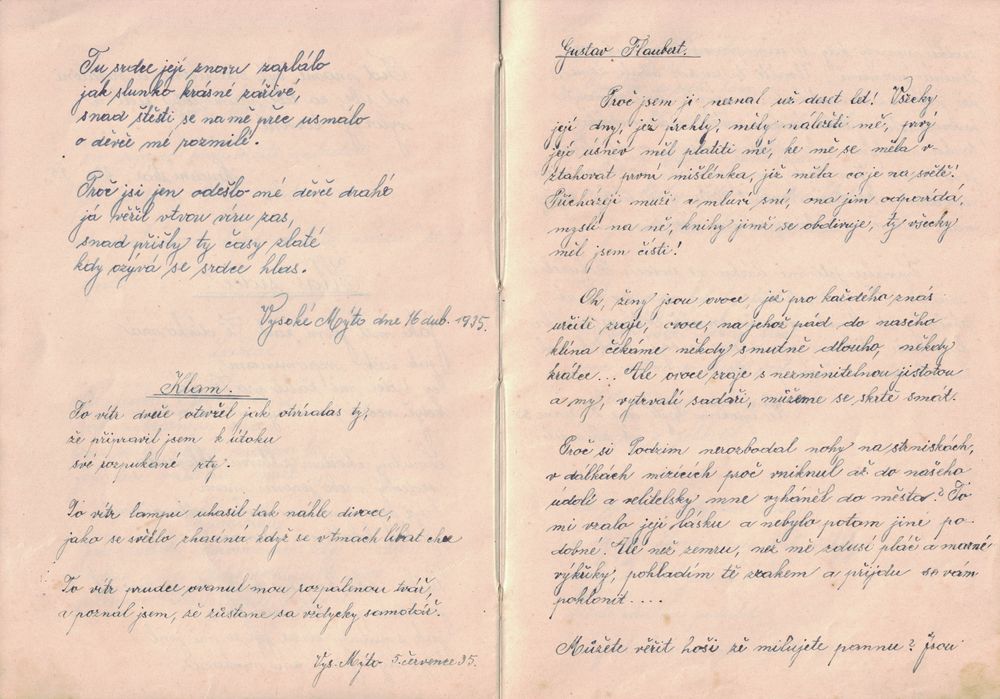 Tu srdce její znovu zaplálo
jak slunko krásné zářivé,
snad štěstí se na mě přec usmálo
o děvče mé rozmilé.
Proč jsi jen odešlo mé děvče drahé
já věřil v tvou víru zas,
snad přišly ty časy zlaté
kdy ozývá se srdce hlas.
Vysoké Mýto dne 16 dub. 1935.
Klam.
To vítr dveře otevřel jak otvíralas ty,
že připravil jsem k útoku
své rozpukané rty.
To vítr lampu uhasil tak náhle divoce,
jako se světlo zhasíná když se v tmách líbat chce
To vítr prudce ovanul mou rozpálenou tvář,
a poznal jsem, že zůstane sa vždycky samotář.
Vys. Mýto 5. července 35.
Gustav Flaubert.
Proč jsem ji neznal už deset let! Všecky
její dny, jež prchly, měly náležeti mě, prvý
její úsměv měl platiti mě, ke mě se měla v
ztahovat první mišlénka, již měla co je na světě!
Přicházejí muži a mluví sní, ona jim odpovídá,
myslí na ně, knihy jimž se obdivuje, ty všecky
měl jsem čísti!
Oh, ženy jsou ovoce, jež pro každého znás
určitě zraje, ovoce, na jehož pád do našeho
klína čekáme někdy smutně dlouho, někdy
krátce... Ale ovoce zraje s nezměnitelnou jistotou
a my, vytrvalí sadaři, můžeme se skrtě smát.
Proč si Podzim nerozbodal nohy na strniskách,
v dálkách mizících proč vniknul až do našeho
udolí a velitelsky mne vyháněl do města? To
mi vzalo její lásku a nebylo potom jiné po-
dobné. Ale než zemru, než mě zdusí pláč a marné
výkřiky, pohladím tě zrakem a přijdu se vám
poklonit....
Můžete věřit hoši žě milujete pannu? Jsou